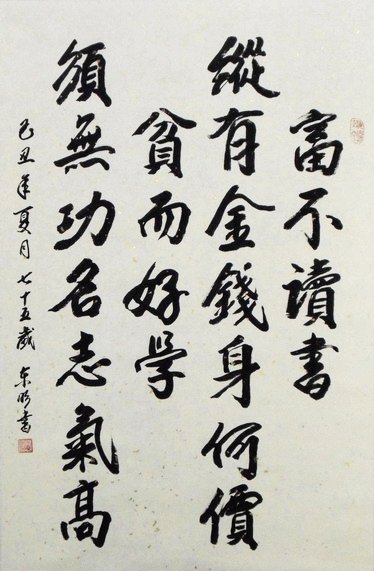 富不讀書
縱有金錢身何價
貧而好学
須無功名志氣高
己丑年夏月 七十五歲 东明書